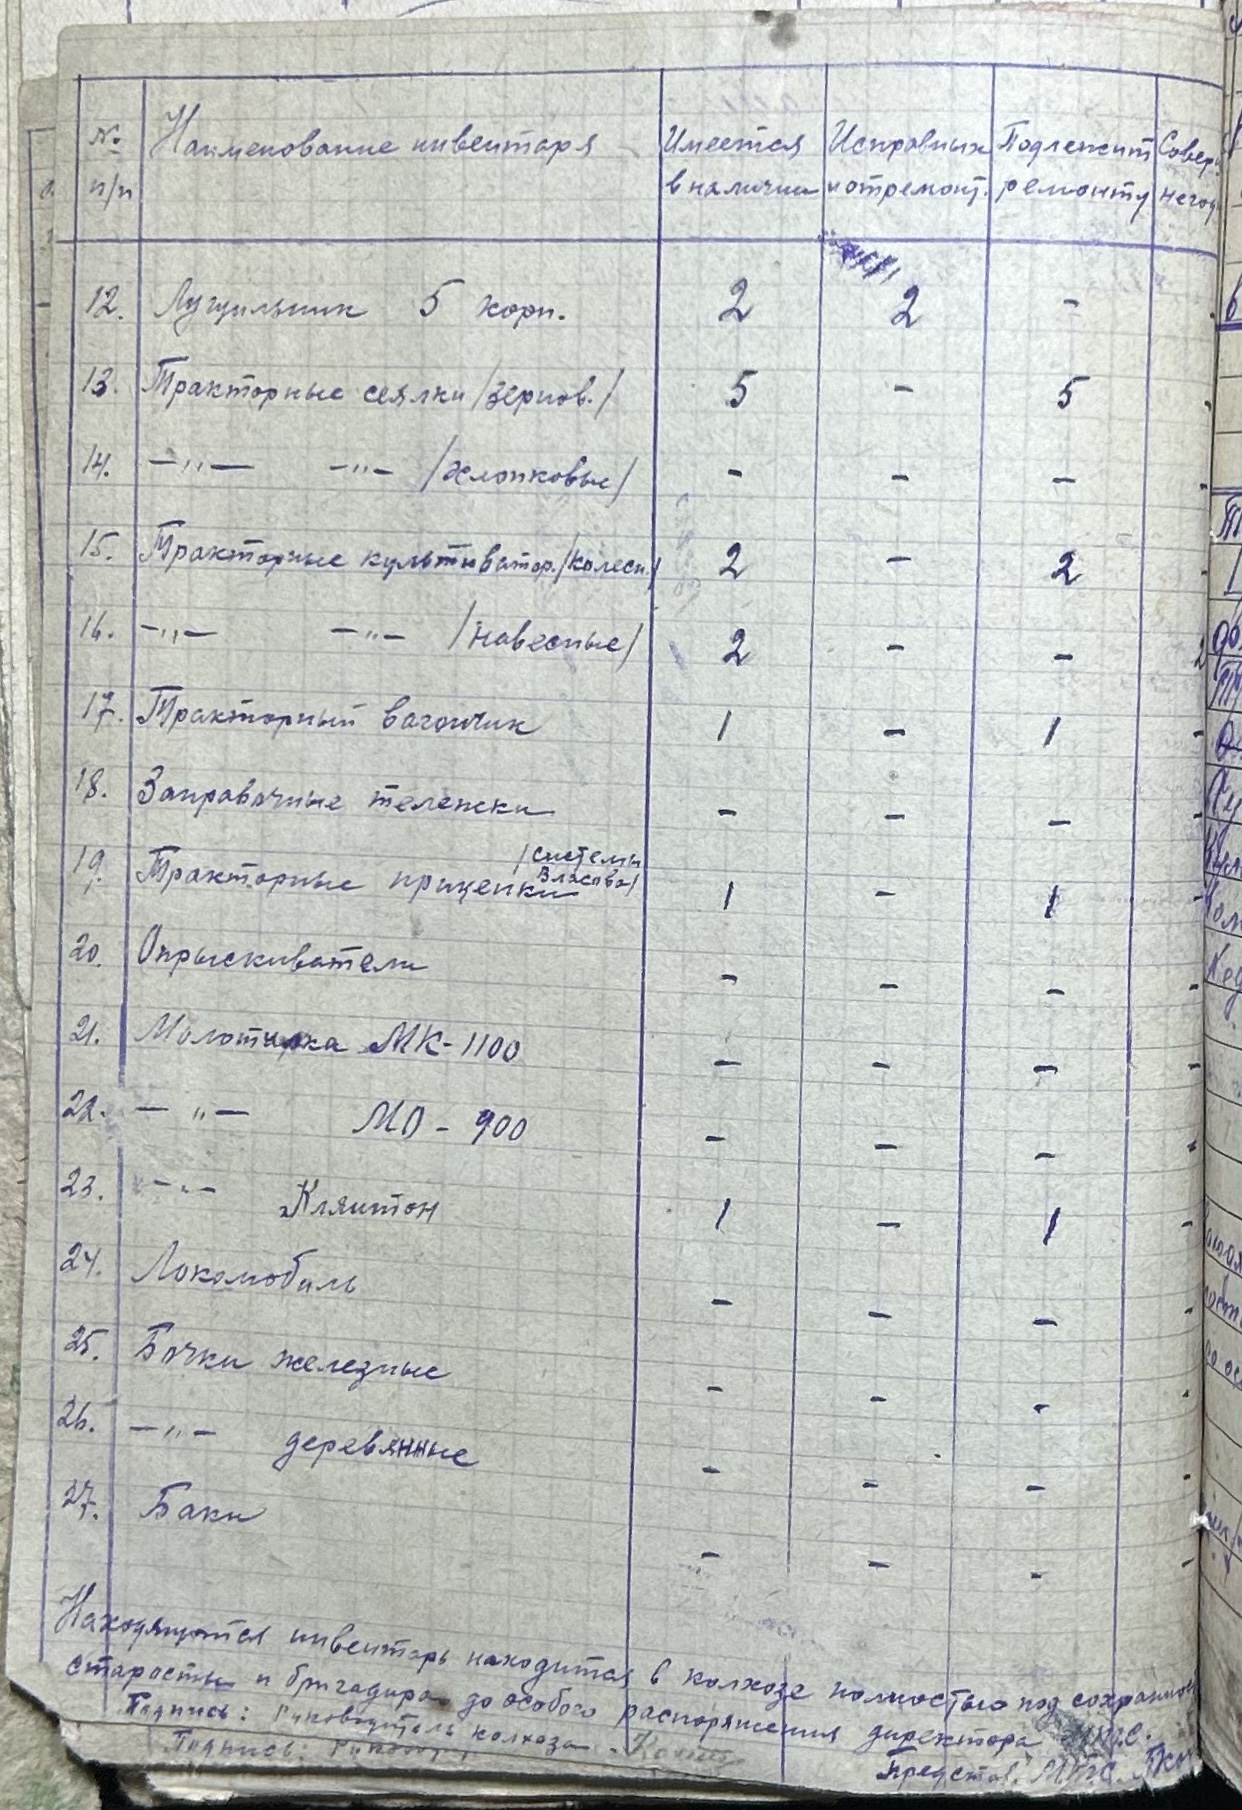 № п/п Наименование инвентаря Имеется в наличии Исправных и отремонт. Подлежит ремонту
12. Лущильник 5 корп. 2 2 -
13. Тракторные сеялки /зернов./ 5 - 5 -
14. —"— —"— /хлопковые/ - - - -
15. Тракторные культиватор. /колесн./ 2 - 2 -
16. —"— —"— /навесные/ 2 - - 2
17. Тракторный вагончик 1 - 1 -
18. Заправочные тележки - - - -
19. Тракторные прицепки /системы Власова/ 1 - 1 -
20. Опрыскиватели - - - -
21. Молотилка МК-1100 - - -
22. —"— МО-900 - - - -
23. —"— Кляйтон 1 - 1 -
24. Локомобиль - - - -
25. Бочки железные - - - -
26. —"— деревянные - - - -
27. Баки - - - -
Находящийся инвентарь находится в колхозе полностью под сохранность
старосты и бригадира до особого распоряжения директора МТС.
Подпись: Руководитель колхоза
Подпись:
Представ. МТС